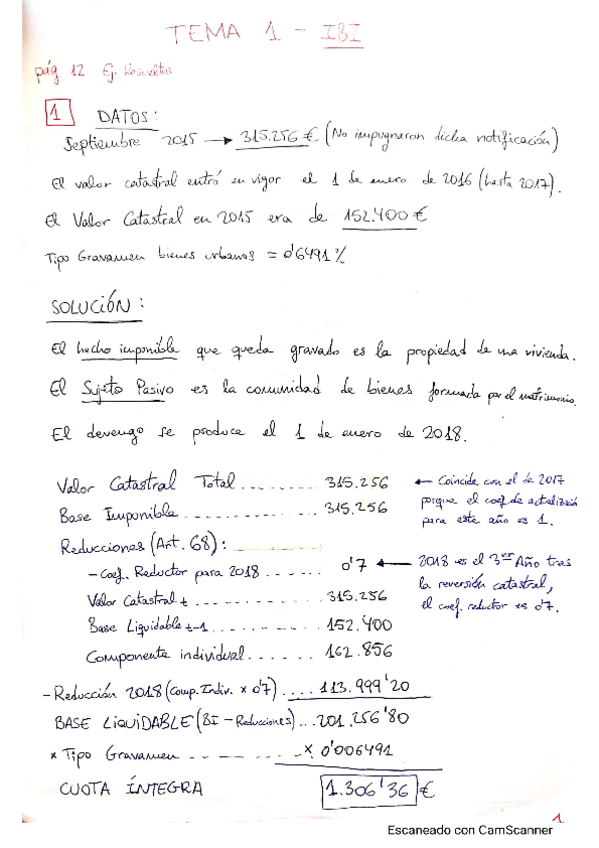 TEMA 1 - IBI
pág 12 Ej. Resueltos
1 DATOS:
Septiembre 2015 → 315.256 € (No impugnaron dicha notificación)
El valor catastral entró en vigor el 1 de enero de 2016 (hasta 2017).
El Valor Catastral en 2015 era de 152.400 €
Tipo Gravamen bienes urbanos = 0'6491 %
SOLUCIÓN:
El hecho imponible que queda gravado es la propiedad de una vivienda.
El Sujeto Pasivo es la comunidad de bienes formada por el matrimonio.
El devengo se produce el 1 de enero de 2018.
Valor Catastral Total......... 315.256 ← Coincide con el de 2017
porque el coef. de actualización
para este año es 1.
Base Imponible................ 315.256
Reducciones (Art. 68): ............
- Coef. Reductor para 2018....... 0'7 ← 2018 es el 3er Año tras
la reversión catastral,
el coef. reductor es 0'7.
Valor Catastral t............... 315.256
Base Liquidable t-1............ 152.400
Componente individual....... 162.856
- Reducción 2018 (Comp. Indiv. x 0'7).... 113.999'20
BASE LIQUIDABLE (BI - Reducciones)... 201.256'80
x Tipo Gravamen ............ x 0'006491
CUOTA ÍNTEGRA 1.306'36 €
1
Escaneado con CamScanner